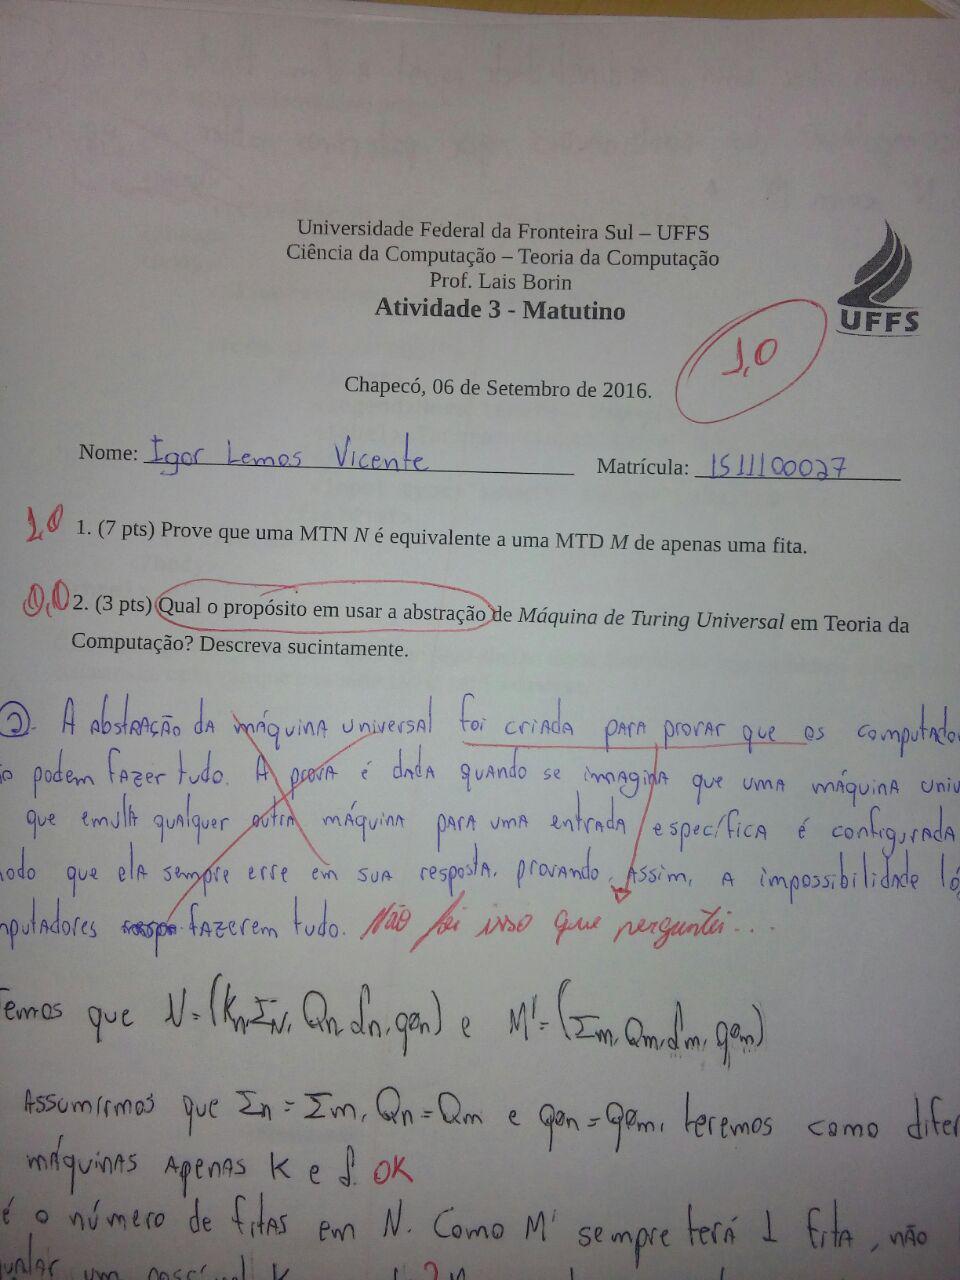 Universidade Federal da Fronteira Sul – UFFS
Ciência da Computação – Teoria da Computação
Prof. Lais Borin
Atividade 3 - Matutino
UFFS
1,0
Chapecó, 06 de Setembro de 2016.
Nome: Igor Lemos Vicente Matrícula: 1511100027
1,0 1. (7 pts) Prove que uma MTN N é equivalente a uma MTD M de apenas uma fita.
0,0 2. (3 pts) Qual o propósito em usar a abstração de Máquina de Turing Universal em Teoria da
Computação? Descreva sucintamente.
2. A abstração da máquina universal foi criada para provar que os
podem fazer tudo. A prova é dada quando se imagina que uma máquina
que emula qualquer outra máquina para uma entrada específica é configurada
que ela sempre erre em sua resposta, provando, assim, a impossibilidade
fazerem tudo. Não foi isso que perguntei...
que N = (Kn, ΣN, Qn, δn, q0n) e M' = (Σm, Qm, δm, q0m)
Assumirmos que Σn = Σm, Qn = Qm e q0n = q0m, teremos como
máquinas apenas K e δ. OK
é o número de fitas em N. Como M' sempre terá 1 fita, não
um